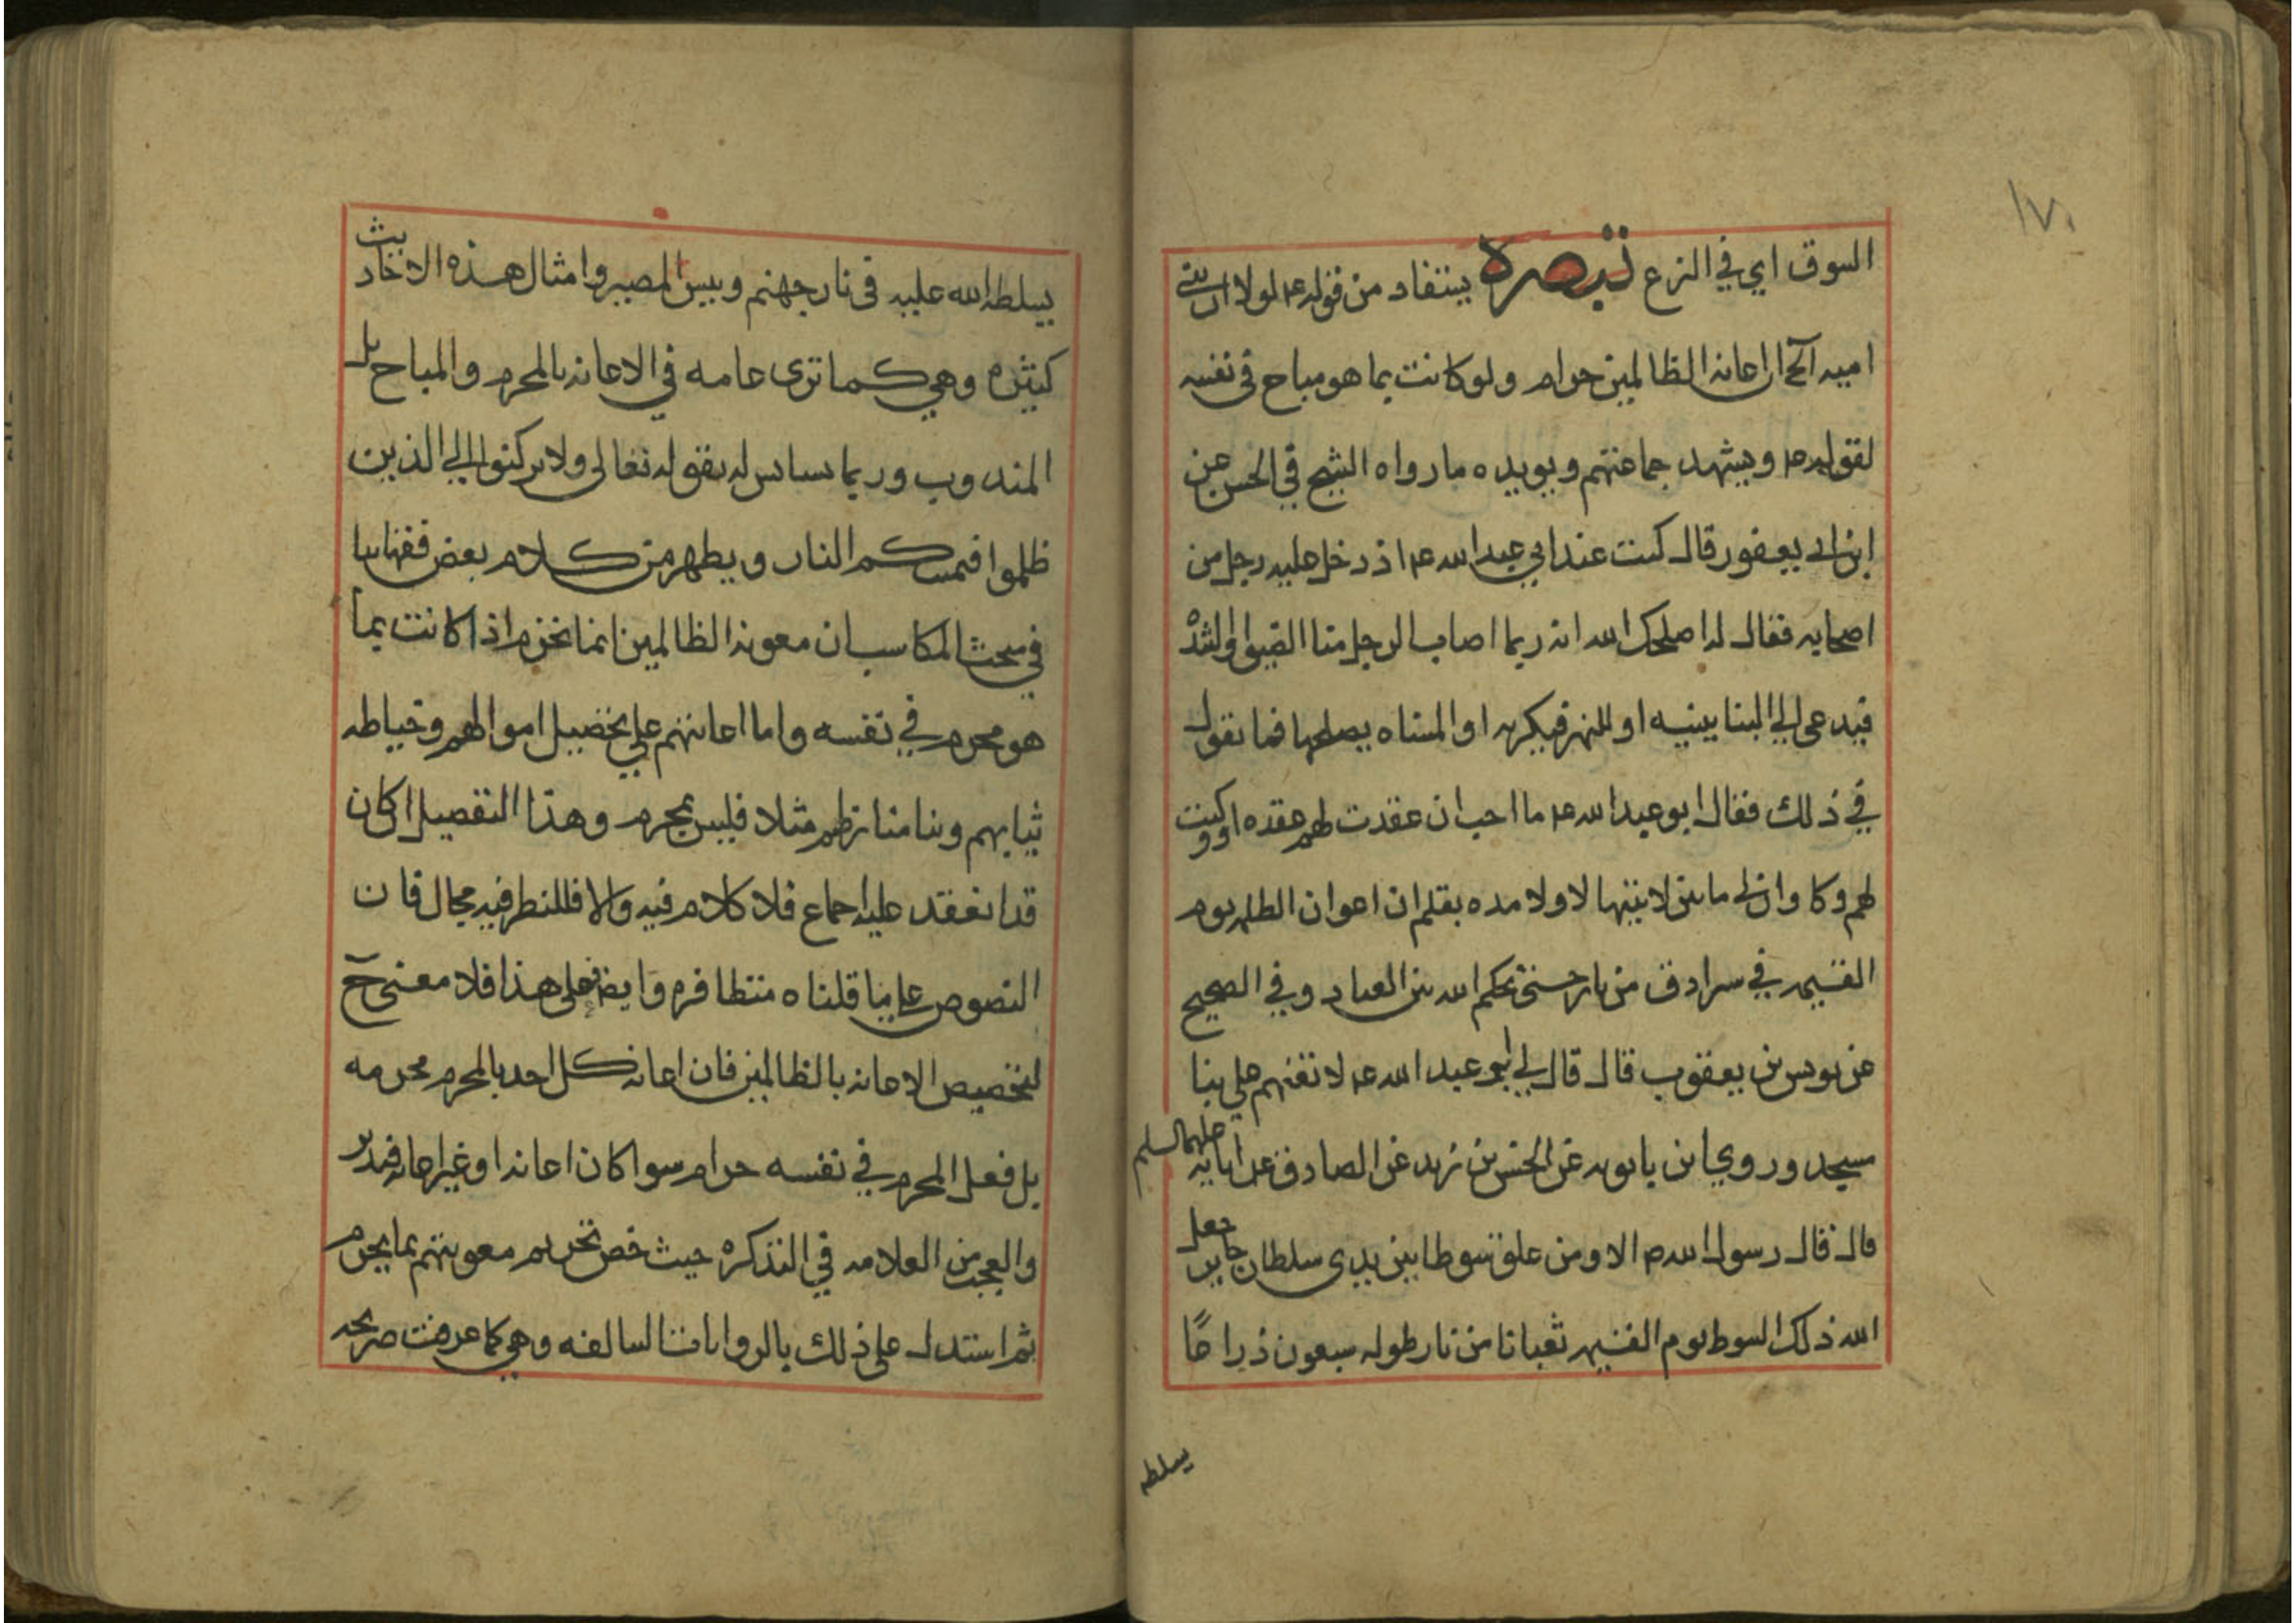 ١٧٠
السوق اي في النزع تبصرة يستفاد من قوله ع لولا ان بني
اميه آلخ ان اعانه الظالمين حرام ولو كانت بما هو مباح في نفسه
لقوله ع ويشهد جماعتهم ويويده ما رواه الشيخ في الحسن عن
ابن ابي يعفور قال كنت عند ابي عبد الله ع اذ دخل عليه رجل من
اصحابه فقال له اصلحك الله انه ربما اصاب الرجل منا الضيق او الشدة
فيدعى الي البنا يبنيه او للنهر فيكريه او المسناه يصلحها فما تقول
في ذلك فقال ابو عبد الله ع ما احب ان عقدت لهم عقده او وكيت
لهم وكا وان لي ما بين لابتيها لا ولا مده بقلم ان اعوان الظلمه يوم
القيمه في سرادق من نار حتي يحكم الله بين العباد وفي الصحيح
عن يونس بن يعقوب قال قال لي ابو عبد الله ع لا تعنهم علي بنا
مسجد وروي ابن بابويه عن الحسن بن زيد عن الصادق عن ابايه عليهم السلم
قال قال رسول الله ص الا ومن علق سوطا بين يدي سلطان جاير جعل
الله ذلك السوط يوم القيمه ثعبانا من نار طوله سبعون ذراعًا
يسلطه
يسلطه الله عليه في نار جهنم وبيس المصير وامثال هذه الاحاديث
كثيره وهي كما ترى عامه في الاعانه بالمحرم والمباح بل
المندوب وربما يستانس له بقوله تعالى ولا تركنوا الي الذين
ظلموا فتمسكم النار ويظهر من كلام بعض فقهاينا
في مبحث المكاسب ان معونه الظالمين انما تحرم اذا كانت بما
هو محرم في نفسه واما اعانتهم علي تحصيل اموالهم وخياطه
ثيابهم وبنا منازلهم مثلا فليس بمحرم وهذا التفصيل ان كان
قد انعقد عليه اجماع فلا كلام فيه والا فللنظر فيه مجال فان
النصوص علي ما قلناه متظافره وايضا فعلى هذا فلا معنى ح
لتخصيص الاعانه بالظالمين فان اعانه كل احد بالمحرم محرمه
بل فعل المحرم في نفسه حرام سوا كان اعانه او غير اعانه فتدبر
والعجب من العلامه في التذكره حيث خص تحريم معونتهم بما يحرم
ثم استدل على ذلك بالروايات السالفه وهي كما عرفت صريحه